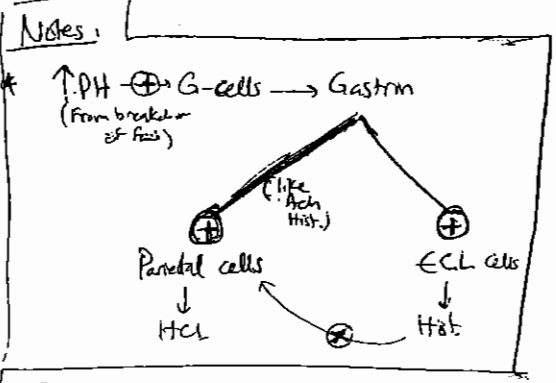 Notes:
* ↑PH ⊕→ G-cells → Gastrin
(From breakdown
of food)
(like
Ach
Hist.)
⊕ ⊕
Parietal cells ECL cells
↓ ↓
HCL Hist.